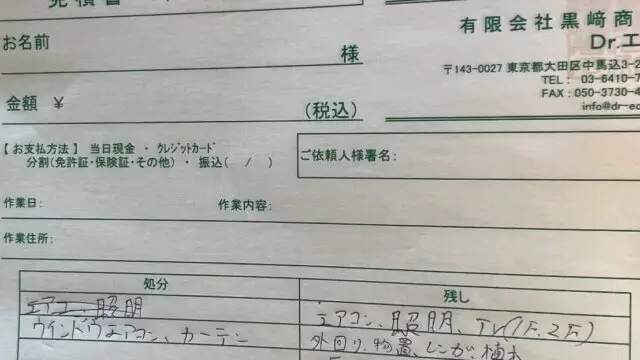 見積書
有限会社黒﨑商
お名前
Dr.エ
様
〒143-0027 東京都大田区中馬込3-2
TEL: 03-6410-7
FAX: 050-3730-4
info@dr-ec
金額 ¥
(税込)
【お支払方法】 当日現金 ・ クレジットカード
分割(免許証・保険証・その他) ・ 振込( / )
ご依頼人様署名:
作業日: 作業内容:
作業住所:
処分 残し
エアコン 照明 エアコン、照明、TV(1F.2F)
ウインドウエアコン、カーテン 外回り、物置、レンガ、植木